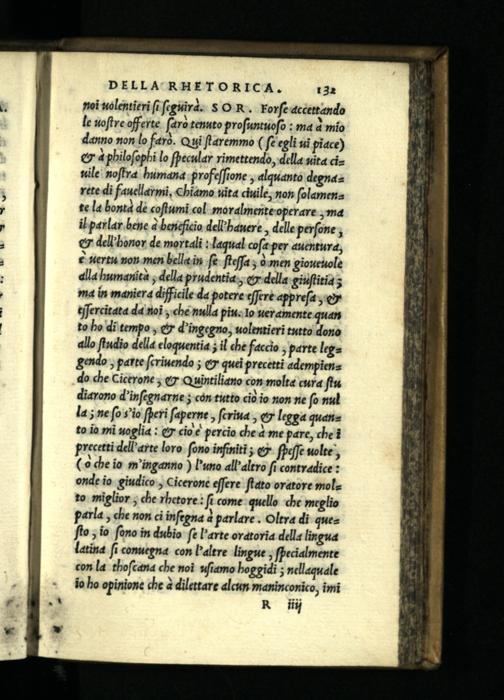 DELLA RHETORICA. 132
noi uolentieri si seguirà. SOR. Forse accettando
le uostre offerte sarò tenuto prosuntuoso : ma à mio
danno non lo farò. Qui staremmo ( se egli ui piace)
& à philosophi lo specular rimettendo, della uita ci=
uile nostra humana professione , alquanto degna=
rete di fauellarmi. Chiamo uita ciuile, non solamen=
te la bontà de costumi col moralmente operare , ma
il parlar bene à beneficio dell'hauere , delle persone ,
& dell'honor de mortali : laqual cosa per auentura,
è uertu non men bella in se stessa, ò men gioueuole
alla humanità , della prudentia , & della giustitia ;
ma in maniera difficile da potere essere appresa , &
essercitata da noi, che nulla piu. Io ueramente quan
to ho di tempo , & d'ingegno, uolentieri tutto dono
allo studio della eloquentia ; il che faccio , parte leg=
gendo , parte scriuendo ; & quei precetti adempien=
do che Cicerone , & Quintiliano con molta cura stu
diarono d'insegnarne ; con tutto ciò io non ne so nul
la ; ne so s'io speri saperne , scriua , & legga quan=
to io mi uoglia : & ciò è percio che à me pare, che i
precetti dell'arte loro sono infiniti ; & spesse uolte ,
( ò che io m'inganno ) l'uno all'altro si contradice :
onde io giudico , Cicerone essere stato oratore mol=
to miglior , che rhetore : si come quello che meglio
parla , che non ci insegna à parlare . Oltra di que=
sto , io sono in dubio se l'arte oratoria della lingua
latina si conuegna con l'altre lingue , specialmente
con la thoscana che noi usiamo hoggidi ; nellaquale
io ho opinione che à dilettare alcun maninconico, imi
R iiij